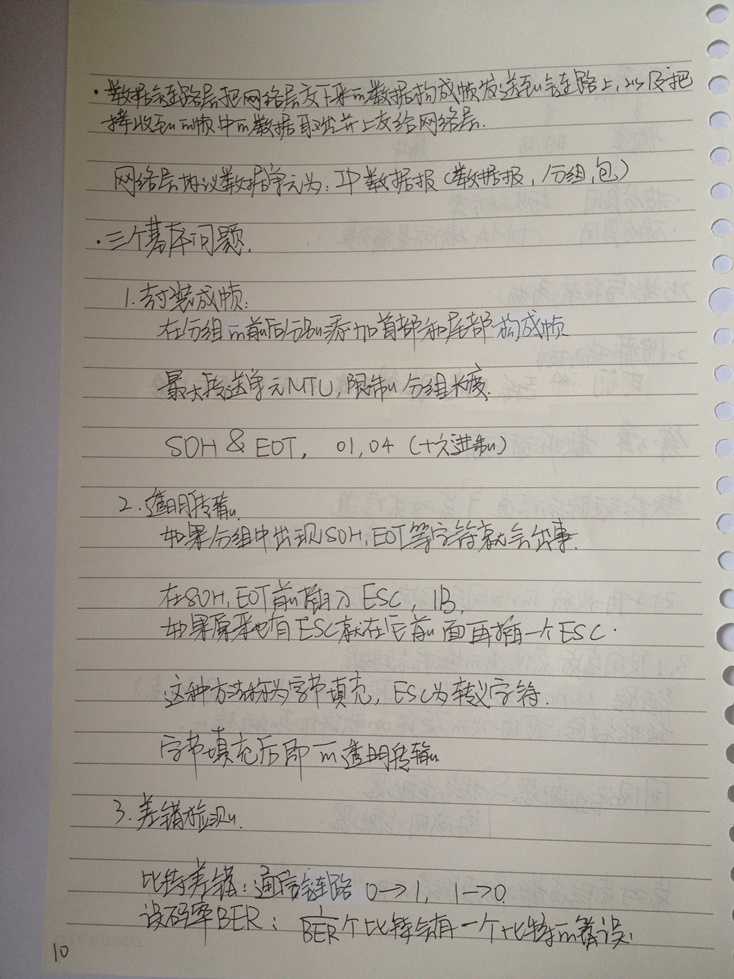 ·数据链路层把网络层交下来的数据构成帧发送到链路上,以及把
接收到的帧中的数据取出并上交给网络层.
网络层协议数据单元为:IP数据报(数据报,分组,包)
·三个基本问题.
1.封装成帧:
在分组的前后分别添加首部和尾部构成帧
最大传送单元MTU,限制分组长度.
SOH & EOT, 01,04 (十六进制)
2.透明传输.
如果分组中出现SOH,EOT等字符就会出事.
在SOH,EOT前插入ESC,1B,
如果原来也有ESC就在它前面再插一个ESC.
这种方法称为字节填充,ESC为转义字符.
字节填充后即可透明传输
3.差错检测.
比特差错:通信链路 0→1, 1→0
误码率BER: 1/BER个比特会有一个比特的错误.
10